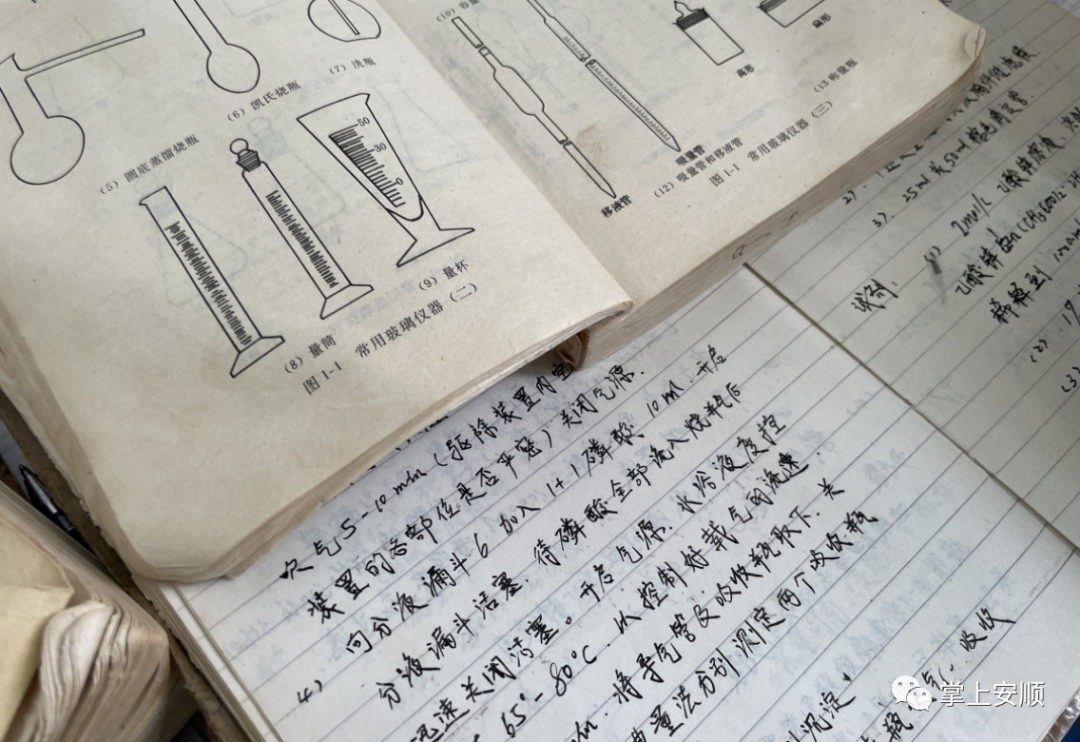 (5) 圆底蒸馏烧瓶
(6) 凯氏烧瓶
(7) 洗瓶
50
30
(8) 量筒
(9) 量杯
图 1-1 常用玻璃仪器(二)
(10) 容量
移液管
吸量管
(12) 吸量管和移液管
图 1-1 常用玻璃仪器(三)
高形
扁形
(13 称量瓶
吹气5-10min(驱除装置内空
装置的各部位是否严密)关闭气源.
4) 向分液漏斗6加入1+1磷酸10ml.开启
分液漏斗活塞.待磷酸全部流入烧瓶后
迅速关闭活塞。开启气源.水浴液度控
65°-80°C.以控制好载气的流速.
将导气管及吸收瓶取下.关
量法分别测定两个吸收瓶
沉淀.
瓶
气.吸收
2).
3). 25ml或50ml棕色滴定管.
试剂. (1) 2mol/L 乙酸锌溶液.
乙酸锌
稀释到
(2) . 17.
(3)
掌上安顺